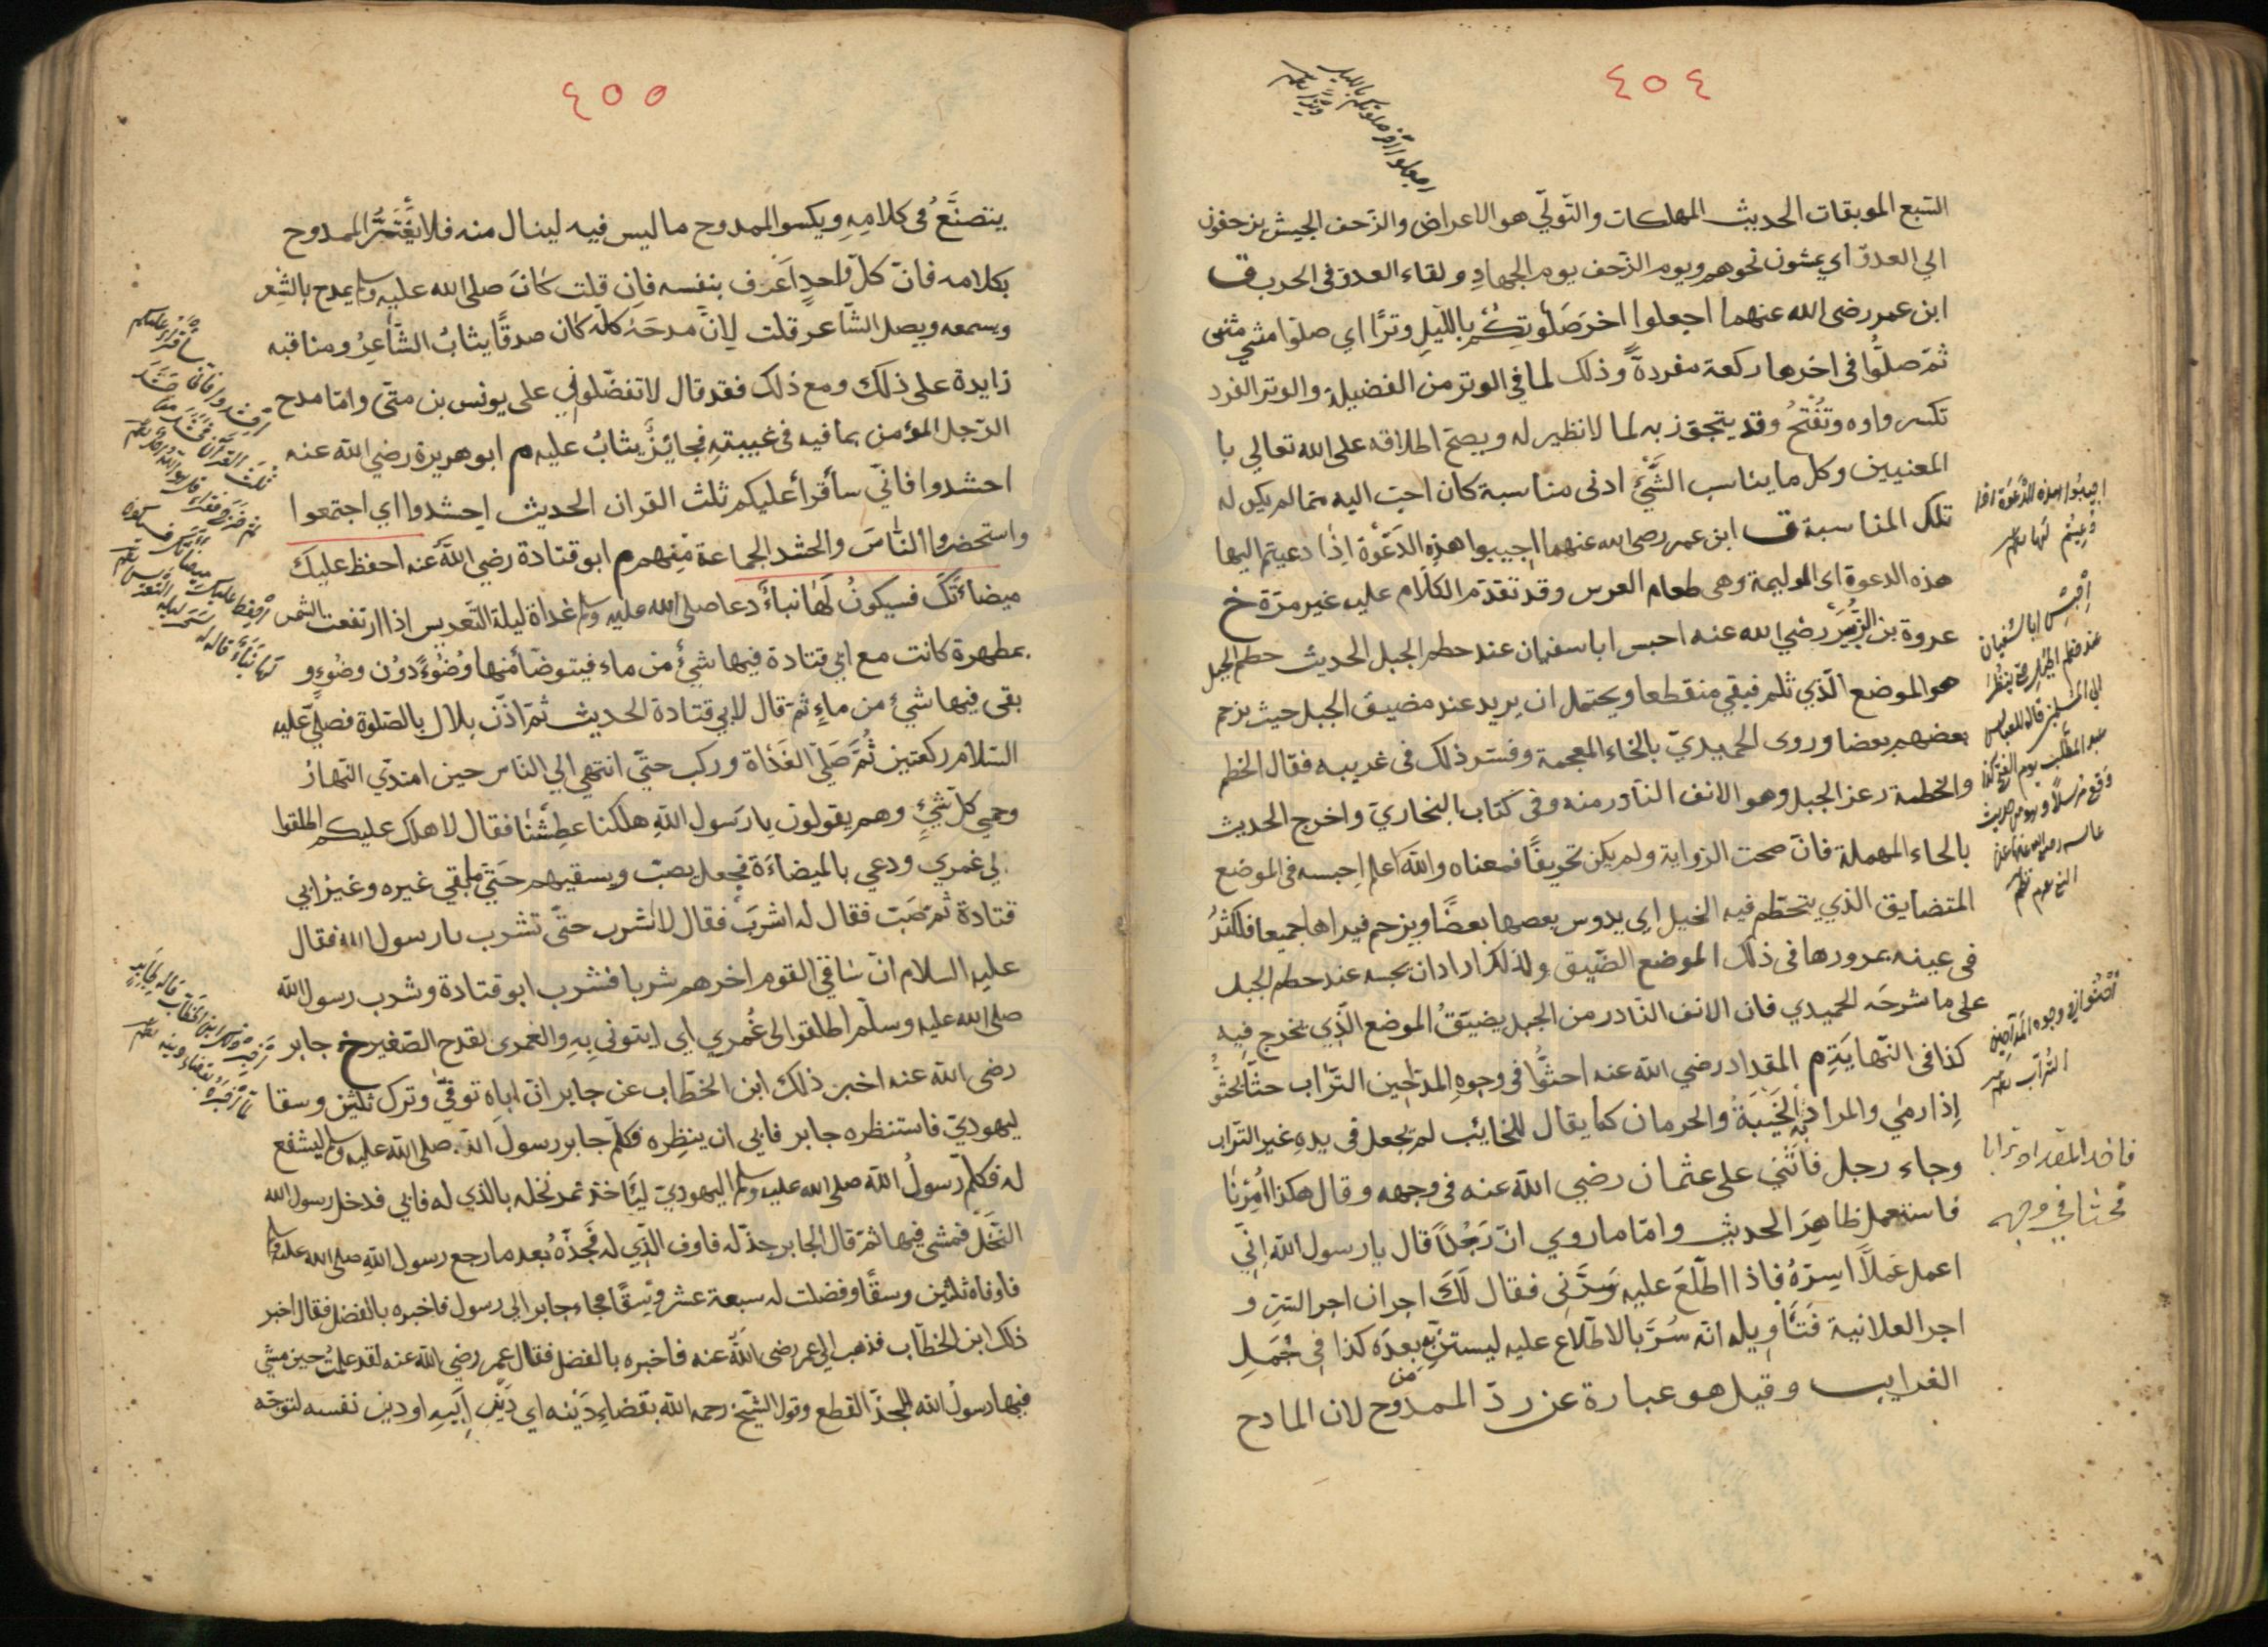 ٤٠٤
السبع الموبقات الحديث المهلكات والتولّي هو الاعراض والزحف الجيش يزحفون
الي العدوّ اي يمشون نحوهم ويوم الزحف يوم الجهاد ولقاء العدوّ في الحرب ق
ابن عمر رضي الله عنهما اجعلوا اخر صلوتكم بالليل وترًا اي صلّوا مثني مثنى
ثمّ صلُّوا في اخرها ركعة مفردةً وذلك لما في الوتر من الفضيلة والوتر الفرد
تكسر واوه وتُفْتحُ وقد يتجوّز به لما لا نظير له ويصحّ اطلاقه على الله تعالي با
المعنيين وكل ما يناسب الشَّيْئَ ادنى مناسبة كان احبّ اليه ممّا لم يكن له
تلك المناسبة ق ابن عمر رضي الله عنهما اجيبوا هذِه الدَّعْوَة اِذَا دعيتم اليها
هذه الدعوة اى الوليمة وهى طعام العرس وقد تقدّم الكلام عليه غير مرّة خ
عروة بن الزُّبَيْرِ رضي الله عنه احبس ابا سفيان عند حطم الجبل الحديث حطم الجبل
هو الموضع الّذي ثلم فبقي منقطعا ويحتمل ان يريد عند مضيق الجبل حيث يزحم
بعضهم بعضا وروى الحميديّ بالخاء المعجمة وفسّر ذلك في غريبه فقال الخطم
والخطمة رعن الجبل وهو الانف النّادر منه وفى كتاب البخاريّ واخرج الحديث
بالحاء المهملة فانّ صحت الرّواية ولم يكن تحريفًا فمعناه والله اعلم احبسه في الموضع
المتضايق الذي يتحطّم فيه الخيل اي يدوس بعضها بعضًا ويزحم فيراها جميعا فتكثرُ
فى عينه بمرورها في ذلك الموضع الضّيق ولذلك اراد ان يحبسه عند حطم الجبل
على ما شرحَه الحميدي فان الانف النّادر من الجبل يضيّقُ الموضع الّذي يخرج فيه
كذا في النّهاية م المقداد رضي الله عنه احثُوا في وجوهِ المدّاحين التّراب حثَا يحثُو
اِذا رمٰي والمراد به الخَيْبَةُ والحرمان كما يقال للخائب لم يجعل في يدهِ غير التراب
وجاء رجل فَاَثْنٰي على عثمان رضي الله عنه في وجهه وقال هكذا اُمِرْنَا
فاستعمل ظاهِرَ الحديث وامّا ماروي انّ رَجُلًا قال يا رسول الله اِنّي
اعمل عَمَلًا اُسِرّهُ فاذا اطّلعَ عليه سَرَّنِي فقال لَكَ اجران اجر السّرِّ و
اجر العلانية فَتَأوِيله انّه سُرَّ بالاطّلاع عليه ليستنَّ بِه من بعدَه كذا في جُمَلِ
الغرايب وقيل هو عبارة عن ردّ الممدوح لان المادح
اجعلوا اخر صلوتكم بالليل
وترا
اجيبوا هذه الدّعوة اذا
دُعِيتُم لها
اِحْبِسْ ابا سُفيان
عند حَطْمِ الجَبَلِ حتّى ينظُرَ
الى المُسْلِمين قاله للعباس
عبد المطّلب يوم الفتح كذا
وقع مرسلًا وهو من حديث
اُحْثُوا في وجوه المدّاحين
التُّرابَ
فاخذ المقداد ترابا
فحثا في وجهه
٤٠٥
يتصنَّعُ في كلامِهِ ويكسو الممدوح ما ليس فيه لينال منه فلا يَغْتَرَّ الممدوح
بكلامه فانّ كلّ واحدٍ اَعْرف بنفسه فاِن قلت كانَ صلى الله عليه وسلم يمدح بالشِّعر
ويسمعه ويصل الشّاعر قلت لانَّ مدحَهُ كلّه كان صدقًا يثابُ الشّاعِرُ ومناقبه
زايدة على ذلك ومع ذلك فقد قال لا تفضّلوني على يونس بن متّى وامّا مدح
الرّجل المؤمن بما فيه في غيبتِهِ فجائزٌ يثابُ عليه م ابو هريرة رضي الله عنه
احشدوا فانّي سأقرأ عليكم ثلث القران الحديث احشدوا اي اجتمعوا
واستحضروا النّاسَ والحشد الجماعة مِنهم م ابو قتادة رضي الله عنه احفظ عليك
ميضاءتَكَ فسيكونُ لَهَا نبأٌ دعا صلى الله عليه وسلم غداة ليلة التَّعريس اذا ارتفعت الشّمس
بمطهرة كانت مع ابي قتادة فيها شيءٌ من ماء فيتوضّأ منها وُضُوءً دوُن وضُوءٍ و
بقى فيها شيءٌ من ماءٍ ثمّ قال لابي قتادة الحديث ثمّ اذّن بلال بالصّلوة فصلّي عليه
السّلام ركعتين ثُمَّ صَلّي الغَدٰاة وركب حتّي انتهي الي النّاس حين امتدّي النّهار
وحمي كلّ شيْءٍ وهم يقولون يا رَسول اللهِ هلكنا عطِشْنٰا فقال لا هلك عليكم اطلقوا
لي غمري ودعي بالميضاءَة فجعل يصبّ ويسقيهم حَتّي مابقي غيره وغير ابي
قتادة ثمّ صَبّ فقال له اشربْ فقال لا اشرب حتّى تشرب يا رسول الله فقال
عليهِ السلام انّ سَاقي القوم اخرهم شربا فشرب ابو قتادة وشرب رسول الله
صلى الله عليه وسلّم اطلقوا لى غُمري اي ايتونِي بِهِ والغمرى القدح الصّغير خ جابر
رضى الله عنه اخبر ذلك ابن الخطّاب عن جابر انّ اباه توفّي وترك ثلثين وسقا
ليهوديّ فاستنظره جابر فابي ان ينظِره فكلّم جابر رسول الله صلى الله عليه وسلم ليشفع
له فكلّم رسولُ الله صلى الله عليه وسلم اليهوديّ ليَأخذ تمر نخله بالذي له فابي فدخل رسول الله
النَّخلَ فمشى فيها ثمّ قال لجابر جذّ له فاوف الّذي له فجَذّهُ بعد ما رجع رسول اللهِ صلى الله عليه وسلم
فاوفاه ثلثين وسقًا وفضلت له سبعة عشر وَسْقًا فجاء جابر الي رسول فاخبره بالفضل فقال اخبر
ذلك ابن الخطّاب فذهب الي عمر رضى الله عنه فاخبره بالفضل فقال عمر رضي الله عنه لقد علمتُ حين مشي
فيها رسولُ الله الجذّ القطع وقول الشّيخ رحمه الله بقضاءِ دَيْنه اي دَيْنِ اَبيهِ او دين نفسه لتوجّه
سأقرأ عليكم
ثلث القرآن
ثم خرج فقرأ قل هو الله احد
احفظ عليك ميضأتك فسيكون
لها نَبَأٌ قاله له
اَخْبِرْ ذلك ابن الخطّاب قاله لجابر
لمّا اخبره بقضاء دينه